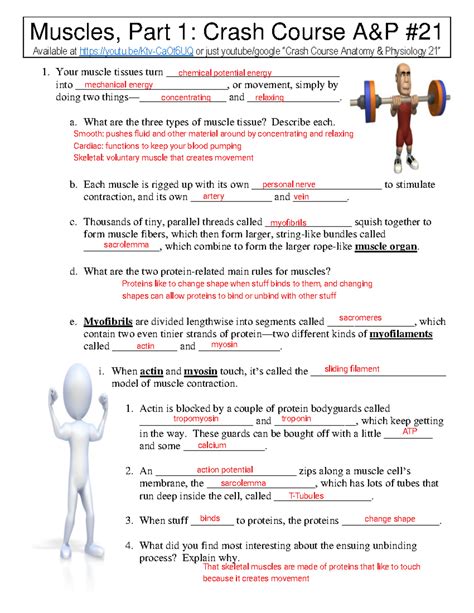 Muscles, Part 1: Crash Course A&P #21
Available at https://youtu.be/Ktv-CaOt6UQ or just youtube/google "Crash Course Anatomy & Physiology 21"
1. Your muscle tissues turn chemical potential energy
into mechanical energy, or movement, simply by
doing two things—concentrating and relaxing.
a. What are the three types of muscle tissue? Describe each.
Smooth: pushes fluid and other material around by concentrating and relaxing
Cardiac: functions to keep your blood pumping
Skeletal: voluntary muscle that creates movement
b. Each muscle is rigged up with its own personal nerve to stimulate
contraction, and its own artery and vein.
c. Thousands of tiny, parallel threads called myofibrils squish together to
form muscle fibers, which then form larger, string-like bundles called
sacrolemma, which combine to form the larger rope-like muscle organ.
d. What are the two protein-related main rules for muscles?
Proteins like to change shape when stuff binds to them, and changing
shapes can allow proteins to bind or unbind with other stuff
e. Myofibrils are divided lengthwise into segments called sacromeres, which
contain two even tinier strands of protein—two different kinds of myofilaments
called actin and myosin.
i. When actin and myosin touch, it's called the sliding filament
model of muscle contraction.
1. Actin is blocked by a couple of protein bodyguards called
tropomyosin and troponin, which keep getting
in the way. These guards can be bought off with a little ATP
and some calcium.
2. An action potential zips along a muscle cell's
membrane, the sarcolemma, which has lots of tubes that
run deep inside the cell, called T-Tubules.
3. When stuff binds to proteins, the proteins change shape.
4. What did you find most interesting about the ensuing unbinding
process? Explain why.
That skeletal muscles are made of things that like to touch
because it creates movement